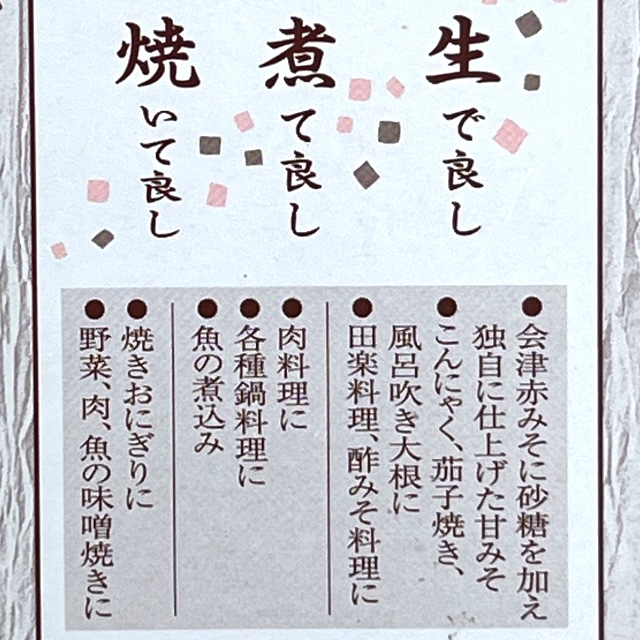 生で良し
煮て良し
焼いて良し
●会津赤みそに砂糖を加え
独自に仕上げた甘みそ
●こんにゃく、茄子焼き、
風呂吹き大根に
●田楽料理、酢みそ料理に
●肉料理に
●各種鍋料理に
●魚の煮込み
●焼きおにぎりに
●野菜、肉、魚の味噌焼きに